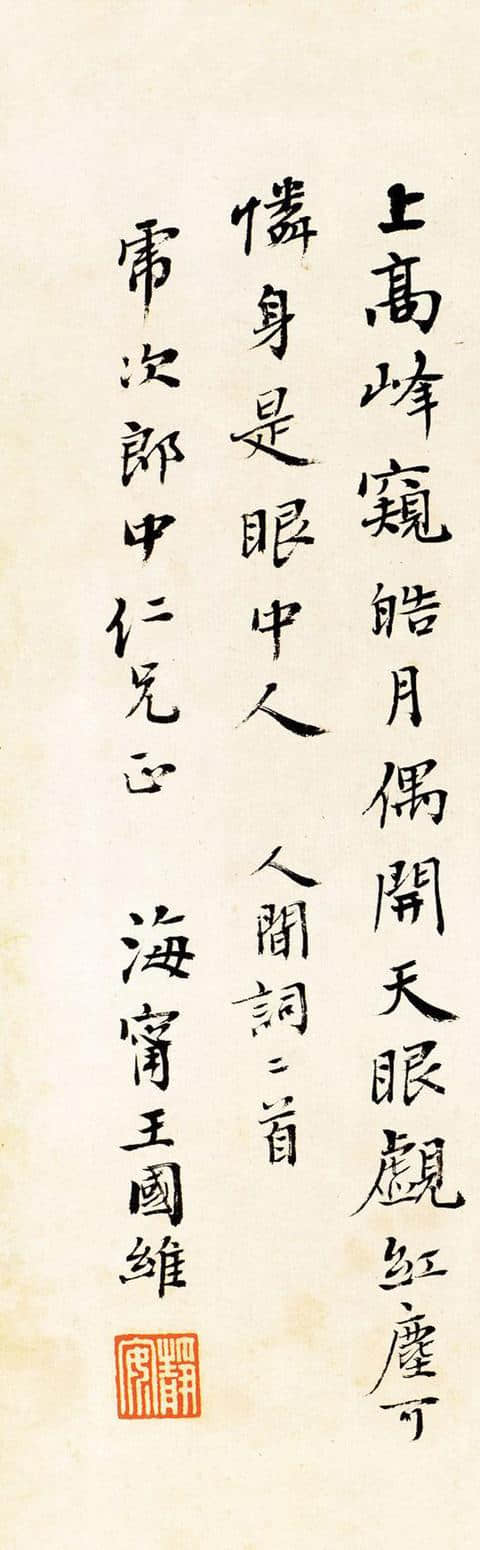 上高峰窺皓月偶開天眼覷紅塵可
憐身是眼中人 人間詞二首
次郎中仁兄正 海甯王國維
靜安